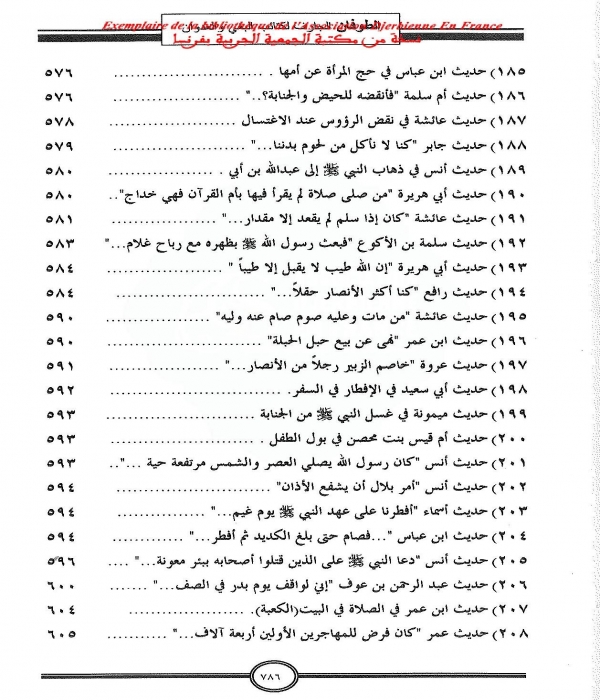 Exemplaire de la bibliothèque de L'Association Djerbienne En France
نسخة من مكتبة الجمعية الجربية بفرنسا
الطوفان
١٨٥) حديث ابن عباس في حج المرأة عن أمها . .......................... ٥٧٦
١٨٦) حديث أم سلمة "فأنقضه للحيض والجنابة؟.." .......................... ٥٧٦
١٨٧) حديث عائشة في نقض الرؤوس عند الاغتسال .......................... ٥٧٨
١٨٨) حديث جابر "كنا لا نأكل من لحوم بدننا..." .......................... ٥٧٩
١٨٩) حديث أنس في ذهاب النبي ﷺ إلى عبدالله بن أبي . .................. ٥٨٠
١٩٠) حديث أبي هريرة "من صلى صلاة لم يقرأ فيها بأم القرآن فهي خداج".. ٥٨٠
١٩١) حديث عائشة "كان إذا سلم لم يقعد إلا مقدار..." .................. ٥٨١
١٩٢) حديث سلمة بن الأكوع "فبعث رسول الله ﷺ بظهره مع رباح غلام..." ٥٨٣
١٩٣) حديث أبي هريرة "إن الله طيب لا يقبل إلا طيباً " .................. ٥٨٤
١٩٤) حديث رافع "كنا أكثر الأنصار حقلاً..." .......................... ٥٨٤
١٩٥) حديث عائشة "من مات وعليه صوم صام عنه وليه" .................. ٥٩٠
١٩٦) حديث ابن عمر "نهى عن بيع حبل الحبلة" .......................... ٥٩٠
١٩٧) حديث عروة "خاصم الزبير رجلاً من الأنصار..." .................. ٥٩١
١٩٨) حديث أبي سعيد في الإفطار في السفر. .......................... ٥٩٢
١٩٩) حديث ميمونة في غسل النبي ﷺ من الجنابة .......................... ٥٩٣
٢٠٠) حديث أم قيس بنت محصن في بول الطفل . .......................... ٥٩٣
٢٠١) حديث أنس "كان رسول الله يصلي العصر والشمس مرتفعة حية ..."... ٥٩٣
٢٠٢) حديث أنس "أمر بلال أن يشفع الأذان" .......................... ٥٩٤
٢٠٣) حديث أسماء "أفطرنا على عهد النبي ﷺ يوم غيم..." .................. ٥٩٤
٢٠٤) حديث ابن عباس "...فصام حتى بلغ الكديد ثم أفطر..." .................. ٥٩٤
٢٠٥) حديث أنس "دعا النبي ﷺ على الذين قتلوا أصحابه ببئر معونة..." .... ٥٩٦
٢٠٦) حديث عبد الرحمن بن عوف "إني لواقف يوم بدر في الصف..." ....... ٦٠٠
٢٠٧) حديث ابن عمر في الصلاة في البيت(الكعبة). .................. ٦٠٤
٢٠٨) حديث عمر "كان فرض للمهاجرين الأولين أربعة آلاف..." ........... ٦٠٥
٧٨٦